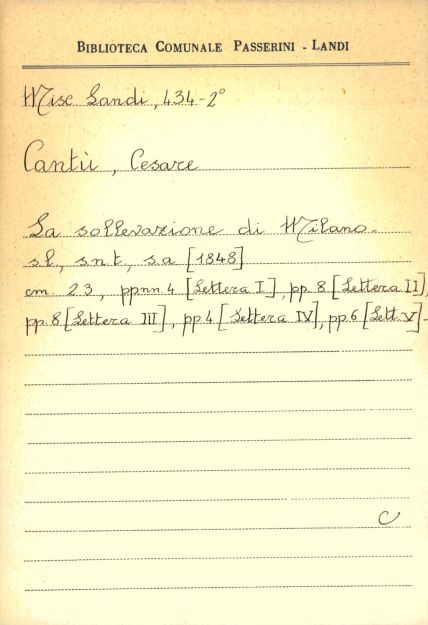 BIBLIOTECA COMUNALE PASSERINI - LANDI
Misc Landi, 434-2°
Cantù, Cesare
La sollevazione di Milano.
s.l., s.n.t., s.a [1848]
cm 23, pp.nn. 4 [Lettera I], pp. 8 [Lettera II],
pp. 8 [Lettera III], pp. 4 [Lettera IV], pp. 6 [Lett. V]-
C